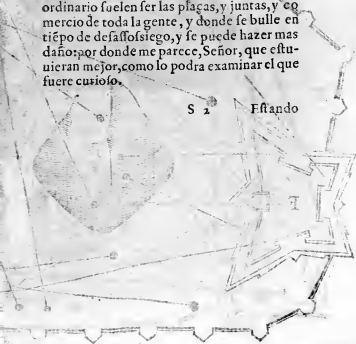 ordinario ſuelen ſer las plaças, y juntas, y co
mercio de toda la gente, y donde ſe bulle en
tiẽpo de deſaſſoſsiego, y ſe puede hazer mas
daño: por donde me parece, Señor, que eſtu-
uieran mejor, como lo podra examinar el que
fuere curioſo.
S 2 Eſtando
I